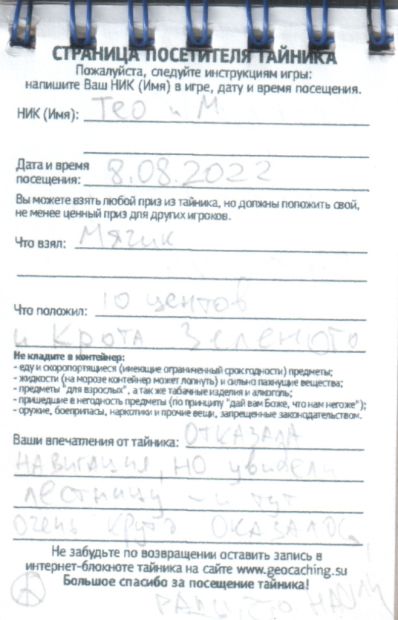 СТРАНИЦА ПОСЕТИТЕЛЯ ТАЙНИКА
Пожалуйста, следуйте инструкциям игры:
напишите Ваш НИК (Имя) в игре, дату и время посещения.
НИК (Имя): Тео и М
Дата и время
посещения: 8.08.2022
Вы можете взять любой приз из тайника, но должны положить свой,
не менее ценный приз для других игроков.
Что взял: Мячик
Что положил: 10 центов
и Крота Зеленого
Не кладите в контейнер:
- еду и скоропортящиеся (имеющие ограниченный срок годности) предметы;
- жидкости (на морозе контейнер может лопнуть) и сильно пахнущие вещества;
- предметы "для взрослых", а так же табачные изделия и алкоголь;
- пришедшие в негодность предметы (по принципу "дай вам Боже, что нам негоже");
- оружие, боеприпасы, наркотики и прочие вещи, запрещенные законодательством.
Ваши впечатления от тайника: ОТКАЗАЛА
НАВИГАЦИЯ, НО увидели
лестницу - и тут
очень круто ОКАЗАЛОСЬ!
Не забудьте по возвращении оставить запись в
интернет-блокноте тайника на сайте www.geocaching.su
Большое спасибо за посещение тайника!
РАДЫ, ЧТО НАШЛИ